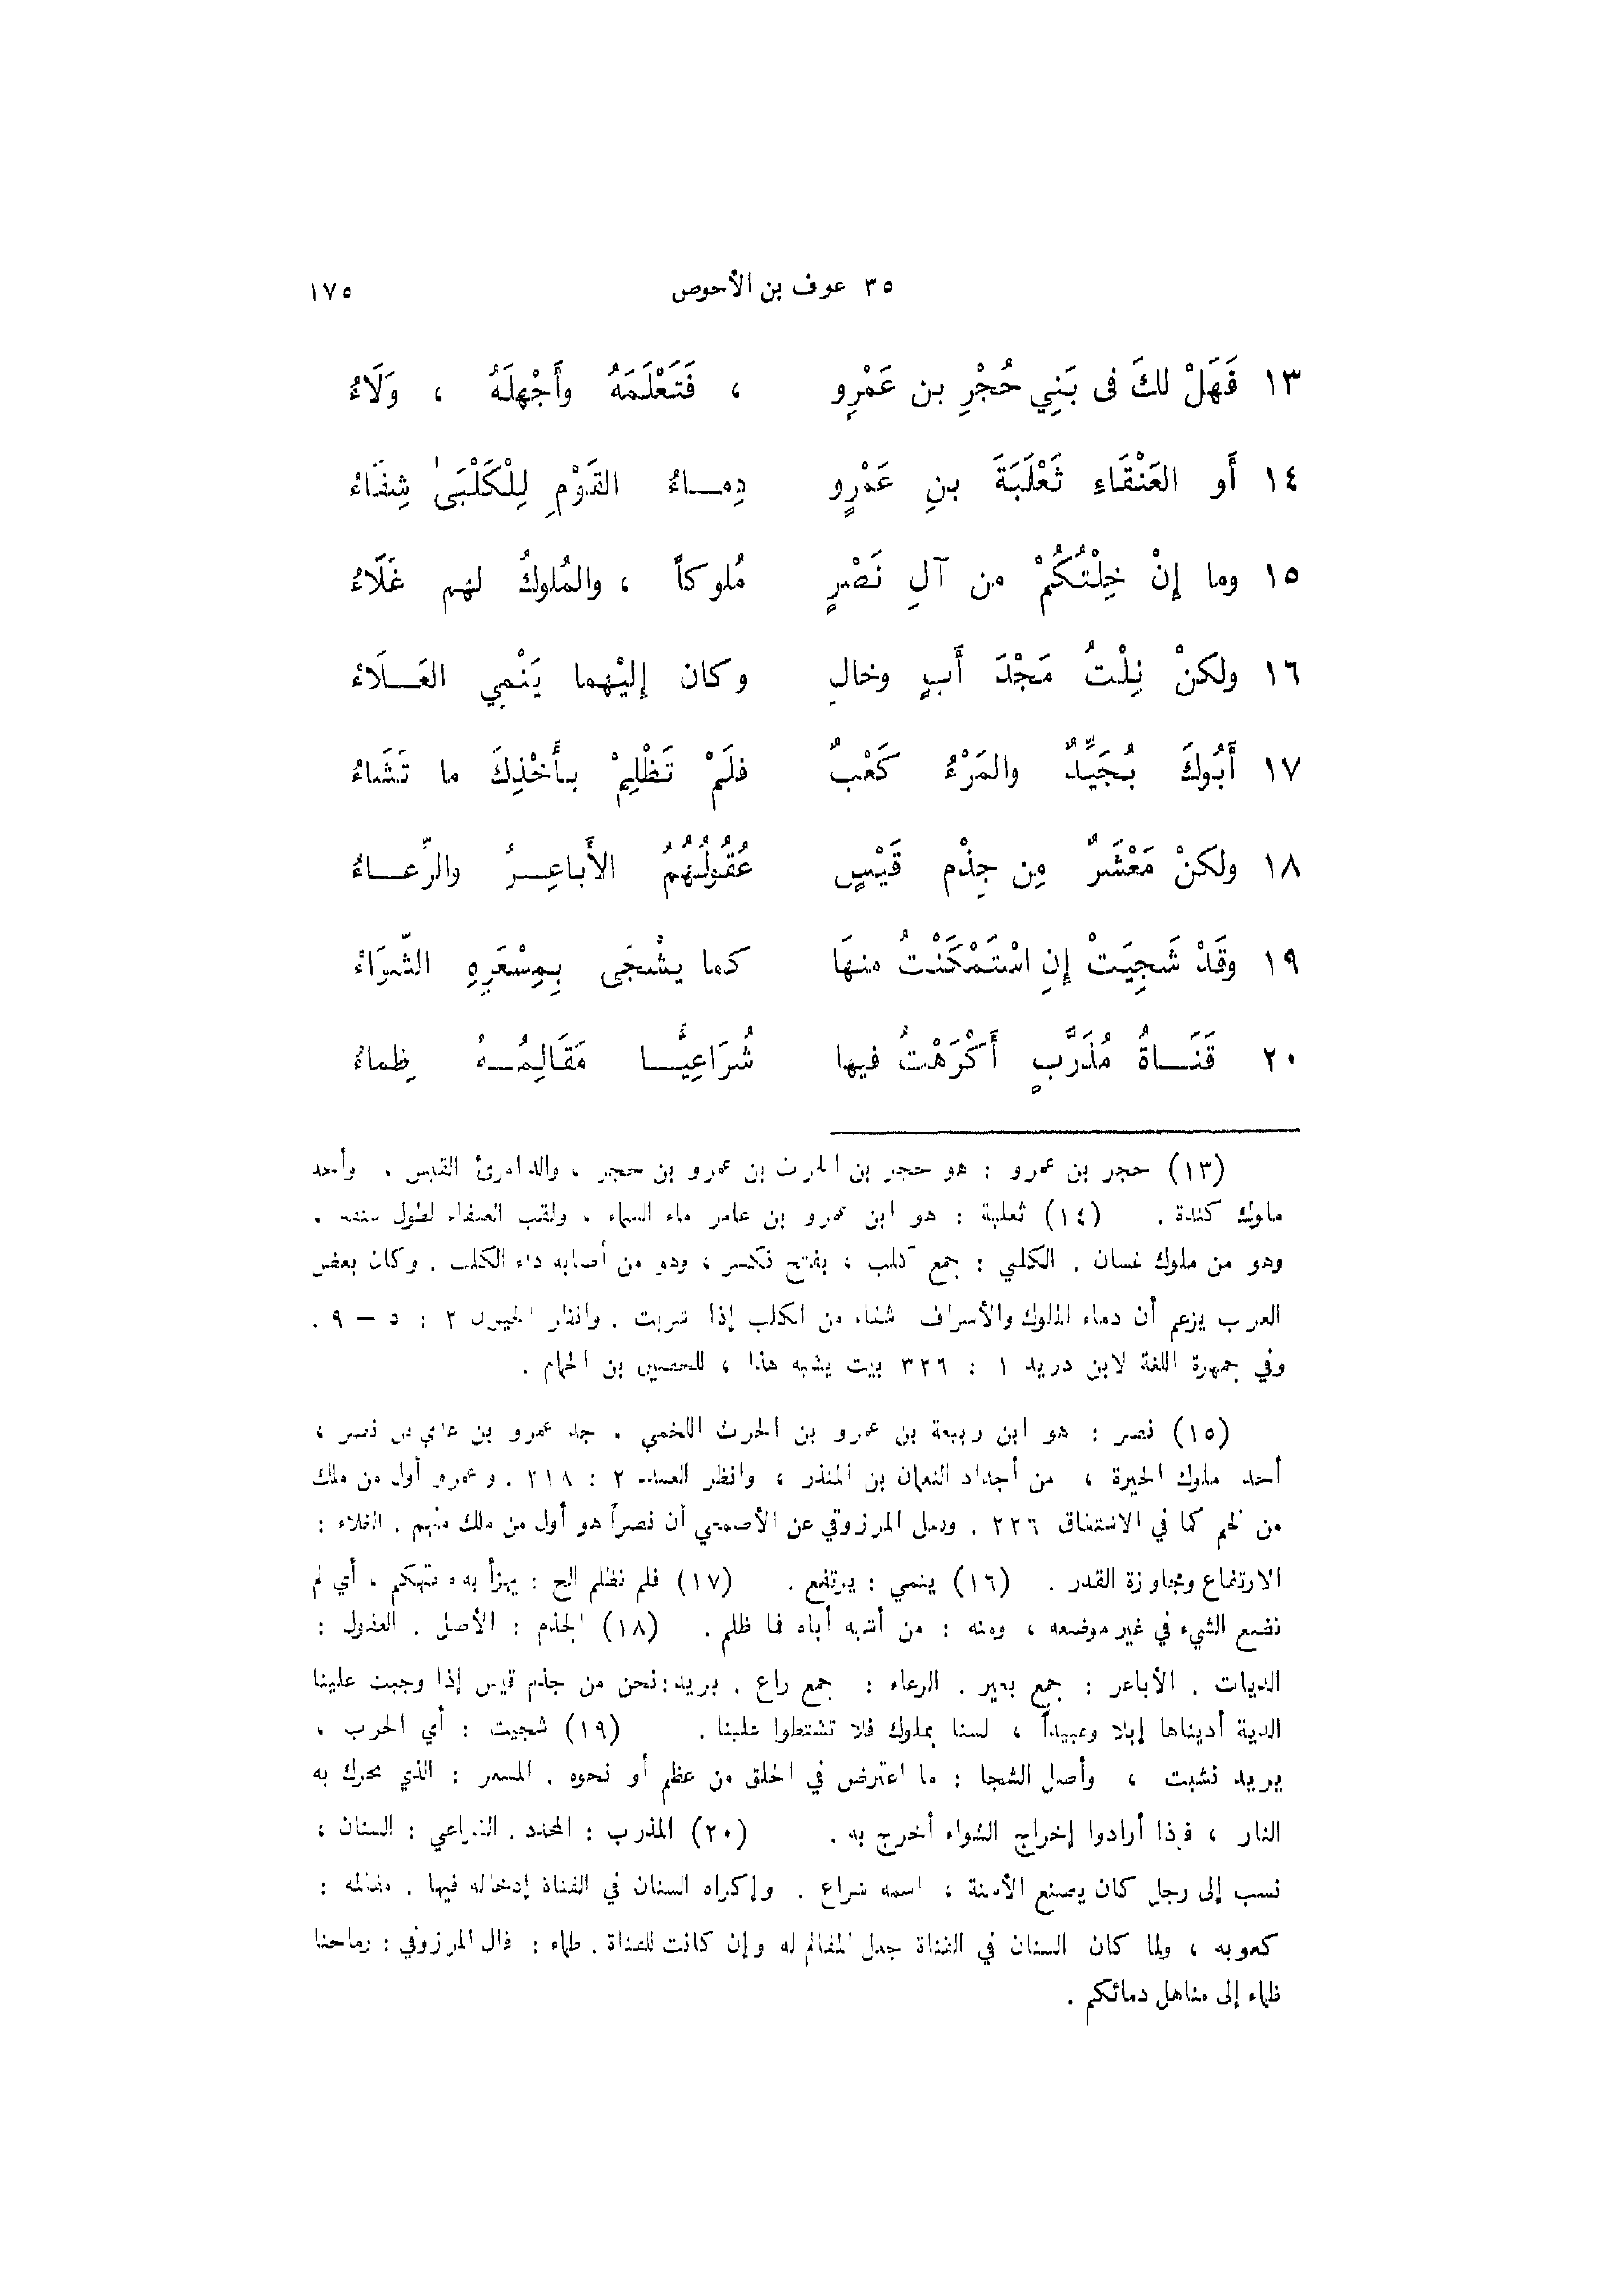 ٣٥ عوف بن الأحوص ١٧٥
١٣ فَهَلْ لكَ فى بَنِي حُجْرِ بن عَمْرٍو ، فَتَعْلَمَهُ وأَجْهلَهُ ، وَلَاءُ
١٤ أَو العَنْقَاءِ ثَعْلَبَةَ بنِ عَمْرٍو دِمـــاءُ القَوْمِ لِلْكَلْبَىٰ شِفَاءُ
١٥ وما إِنْ خِلْتُكُمْ من آلِ نَصْرٍ مُلوكاً ، والمُلوكُ لهم غَلَاءُ
١٦ ولكنْ نِلْتُ مَجْدَ أَبٍ وخالٍ وكان إليْهما يَنْمِي العَـــلَاءُ
١٧ أَبُوكَ بُجَيِّدٌ والمَرْءُ كَعْبٌ فلَمْ تَظْلِمْ بأَخْذِكَ ما تَشَاءُ
١٨ ولكنْ مَعْشَرٌ مِن جِذْم قَيْسٍ عُقُولُهُمُ الأَباعِـــرُ والرِّعـــاءُ
١٩ وقَدْ شَجِيَتْ إِنِ اسْتَمْكَنْتُ منهَا كما يشْجَى بِمِسْعَرِهِ الشِّوَاءُ
٢٠ قَنَـــاةُ مُذَرَّبٍ أَكْرَهْتُ فيها شُرَاعِيًّـــا مَقَالِمُـــهُ ظِماءُ
(١٣) حجر بن عمرو : هو حجر بن الحرث بن عمرو بن حجر ، والد امرئ القيس ، وأحد
ملوك كندة . (١٤) ثعلبة : هو ابن عمرو بن عامر ماء السماء ، ولقب العنقاء لطول عنقه .
وهو من ملوك غسان . الكلبى : جمع كلب ، بفتح فكسر ، وهو من أصابه داء الكلب . وكان بعض
العرب يزعم أن دماء الملوك والأشراف شفاء من الكلب إذا شربت . وانظر الحيوان ٢ : ٥ – ٩ .
وفي جمهرة اللغة لابن دريد ١ : ٣٢٦ بيت يشبه هذا ، للحصين بن الحمام .
(١٥) نصر : هو ابن ربيعة بن عمرو بن الحرث اللخمي . جد عمرو بن عدي بن نصر ،
أحد ملوك الحيرة ، من أجداد النعمان بن المنذر ، وانظر العمدة ٢ : ٢١٨ . وعمرو أول من ملك
من لخم كما في الاشتقاق ٢٢٦ . ونقل المرزوقي عن الأصمعي أن نصراً هو أول من ملك منهم . الغلاء :
الارتفاع ومجاوزة القدر . (١٦) ينمي : يرتفع . (١٧) فلم تظلم الخ : يهزأ به ويتهكم ، أي لم
تضع الشيء في غير موضعه ، ومنه : من أشبه أباه فما ظلم . (١٨) الجذم : الأصل . العقول :
الديات . الأباعر : جمع بعير . الرعاء : جمع راع . يريد : نحن من جذم قيس إذا وجبت علينا
الدية أديناها إبلا وعبيداً ، لسنا بملوك فلا تشتطوا علينا . (١٩) شجيت : أي الحرب ،
يريد نشبت ، وأصل الشجا : ما اعترض في الحلق من عظم أو نحوه . المسعر : الذي يحرك به
النار ، فإذا أرادوا إخراج الشواء أخرج به . (٢٠) المذرب : المحدد . الشراعي : السنان ،
نسب إلى رجل كان يصنع الأسنة ، اسمه شراع . وإكراه السنان في القناة إدخاله فيها . مقالمه :
كعوبه ، ولما كان السنان في القناة جعل المقالم له وإن كانت للقناة . ظماء : قال المرزوقي : رماحنا
ظماء إلى مناهل دمائكم .